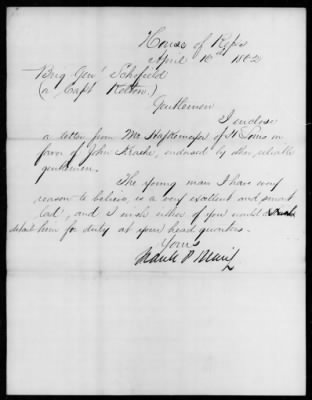 House of Reps
April 10th 1862
Brig Genl Schofield
(or Capt Kelton.)
Gentlemen
I enclose
a letter from Mr of St Louis in
favor of John endorsed by other reliable
gentlemen.
The young man I have every
reason to believe, is a very excellent and smart
lad, and I wish either of you would
detail him for duty at your head quarters.
Yours
Frank P Blair Jr